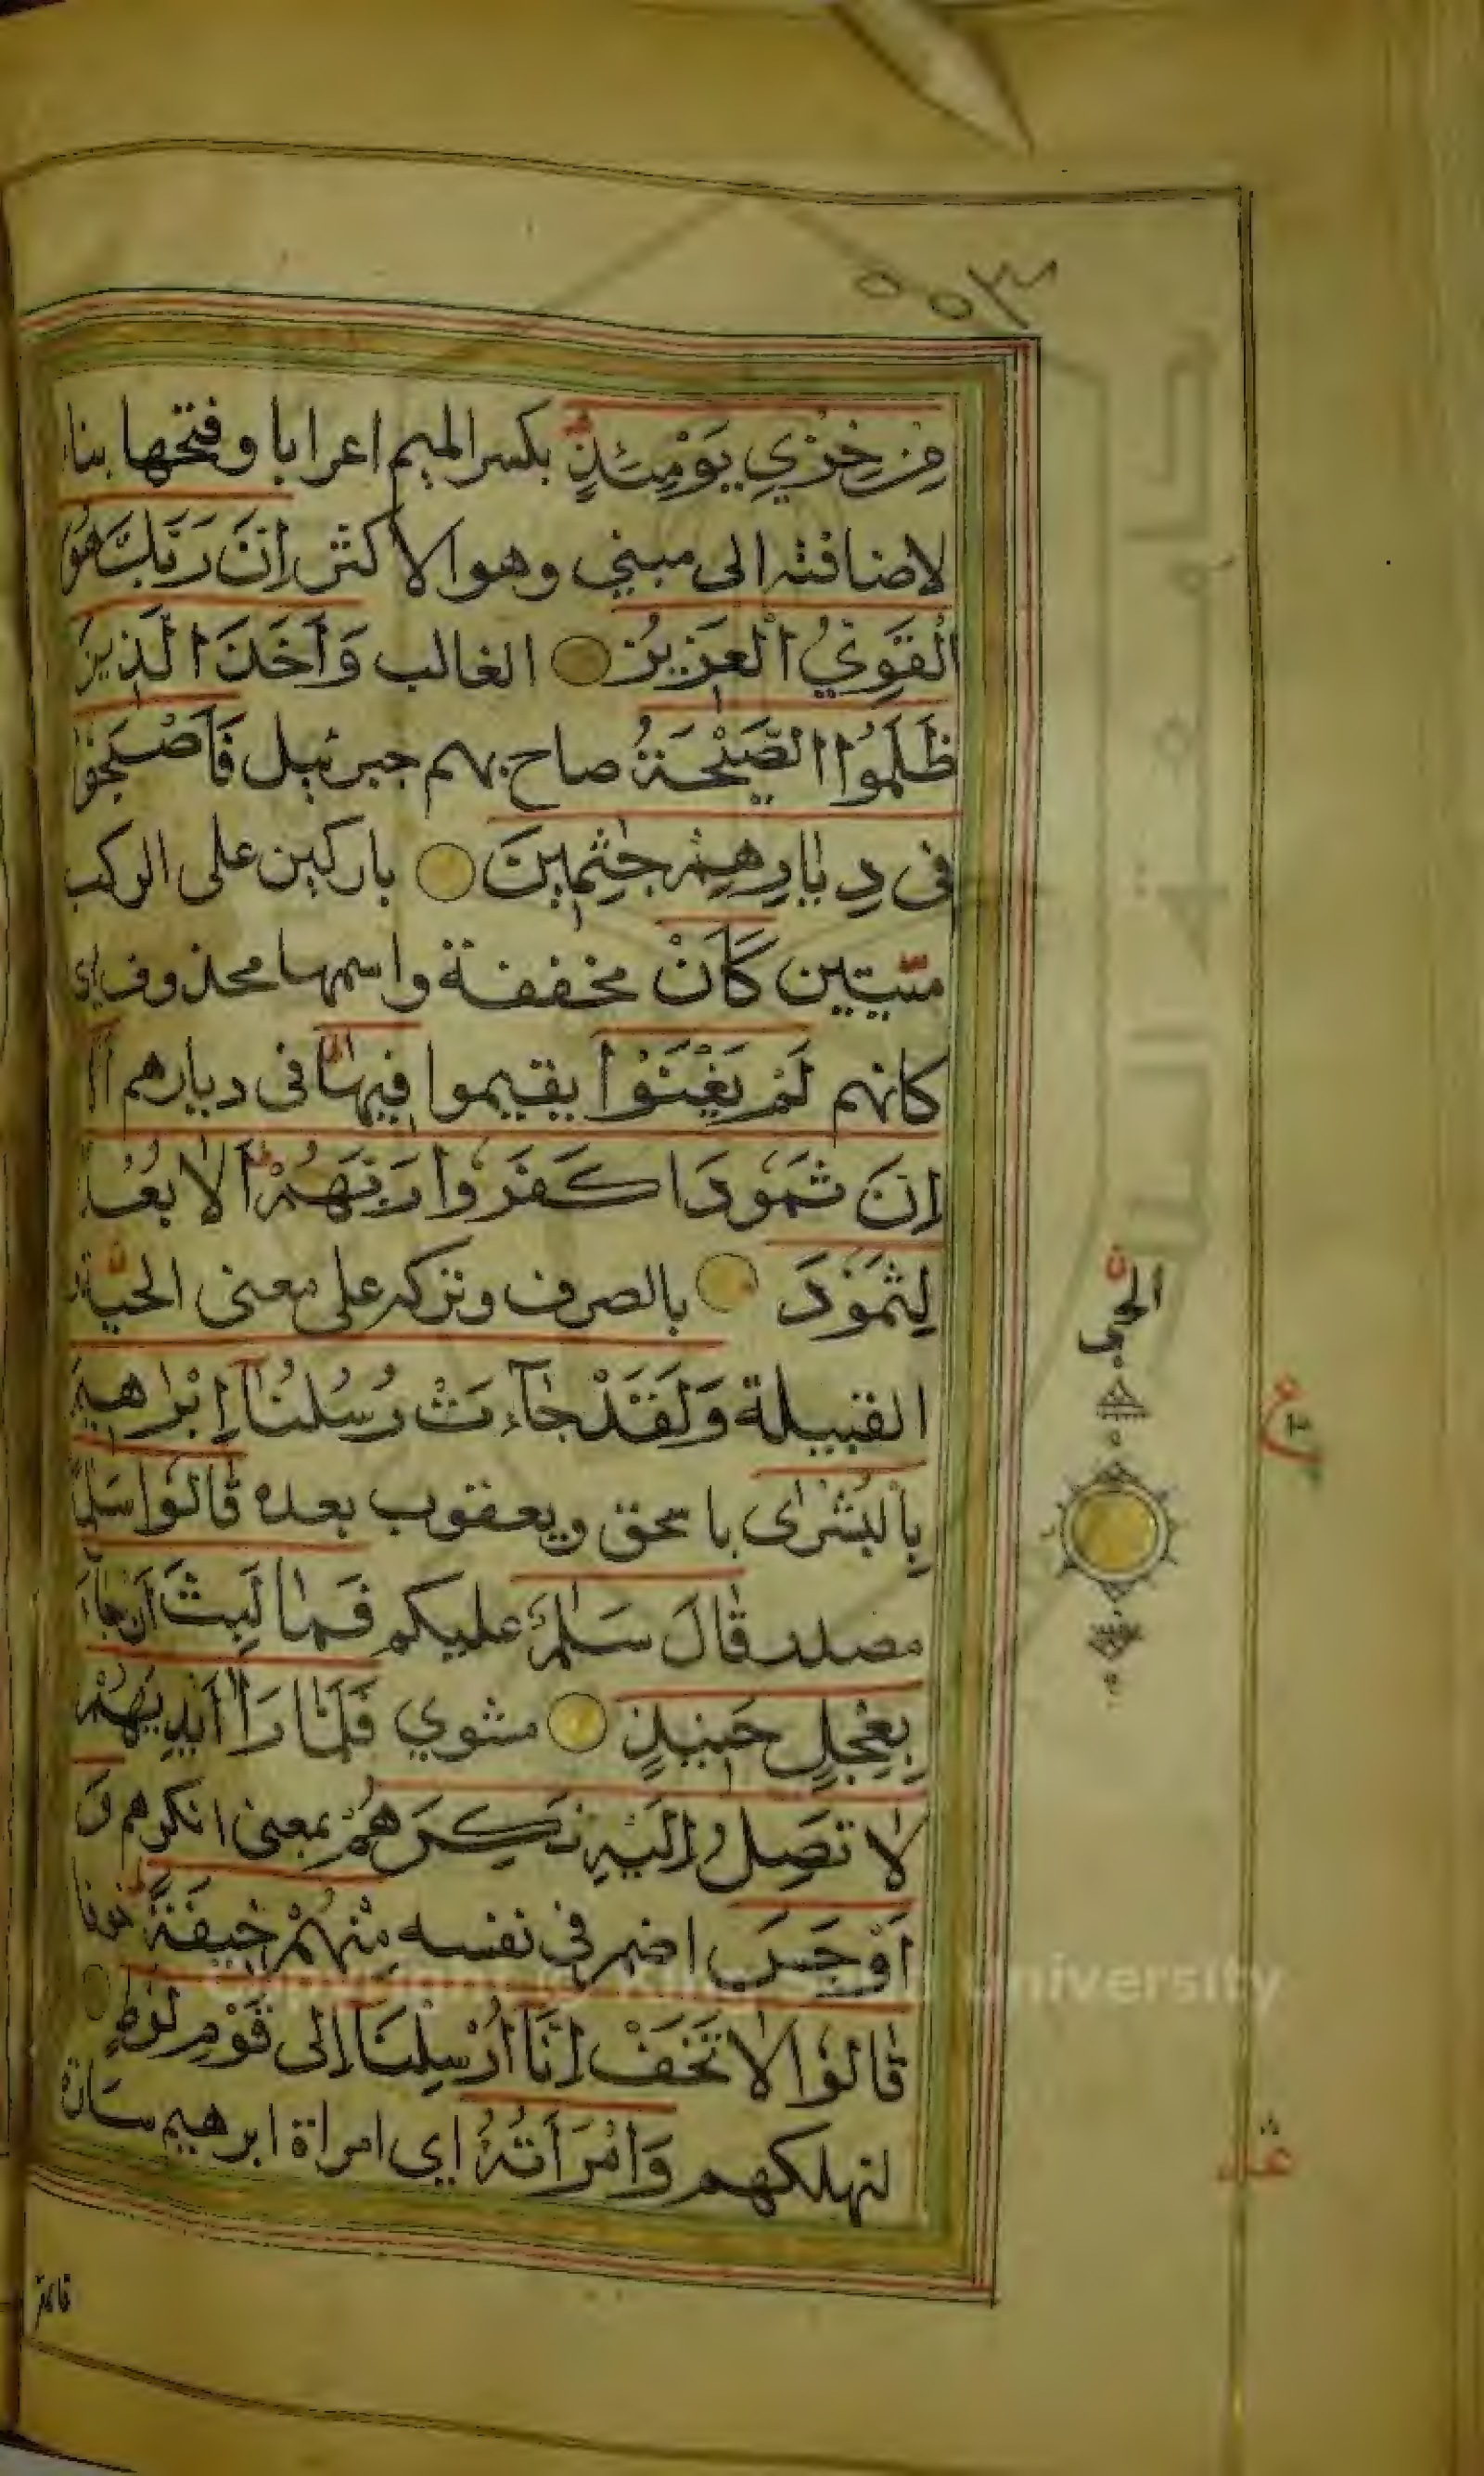 ٥٥٣
مِنْ خِزْيِ يَوْمِئِذٍ بكسر الميم اعرابا وفتحها بناء
لاضافته الى مبني وهو الاكثر إِنَّ رَبَّكَ هُوَ
الْقَوِيُّ الْعَزِيزُ الغالب وَأَخَذَ الَّذِينَ
ظَلَمُوا الصَّيْحَةُ صاح بهم جبرئيل فَأَصْبَحُوا
فِى دِيَارِهِمْ جٰثِمِينَ باركين على الركب
ميتين كَأَنْ مخففة واسمها محذوف اي
كانهم لَمْ يَغْنَوْا يقيموا فِيهَا فى ديارهم أَلَا
إِنَّ ثَمُودَا كَفَرُوا رَبَّهُمْ أَلَا بُعْدًا
لِثَمُودَ بالصرف وتركه على معنى الحي
القبيلة وَلَقَدْ جَآءَتْ رُسُلُنَآ إِبْرٰهِيمَ
بِالْبُشْرٰى باسحق ويعقوب بعده قَالُوا سَلٰمًا
مصدر قَالَ سَلٰمٌ عليكم فَمَا لَبِثَ أَنْ جَآءَ
بِعِجْلٍ حَنِيذٍ مشوي فَلَمَّا رَأٰ أَيْدِيَهُمْ
لَا تَصِلُ إِلَيْهِ نَكِرَهُمْ بمعنى انكرهم وَ
أَوْجَسَ اضمر فى نفسه مِنْهُمْ خِيفَةً خوفا
قَالُوا لَا تَخَفْ إِنَّآ أُرْسِلْنَآ إِلٰى قَوْمِ لُوطٍ
لنهلكهم وَامْرَأَتُهُ اي امراة ابرهيم سارة
قائمة
ع
University